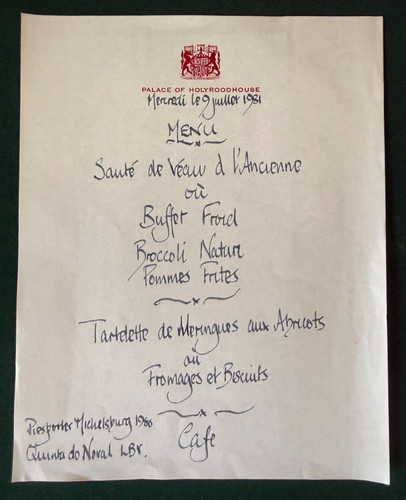 PALACE OF HOLYROODHOUSE
Mercredi le 9 juillet 1981
MENU
Santé de Veau à l'Ancienne
où
Buffet Froid
Broccoli Nature
Pommes Frites
Tartelette de Meringues aux Abricots
où
Fromages et Biscuits
Café
Piesporter Michelsburg 1980
Quinta do Noval LBV.